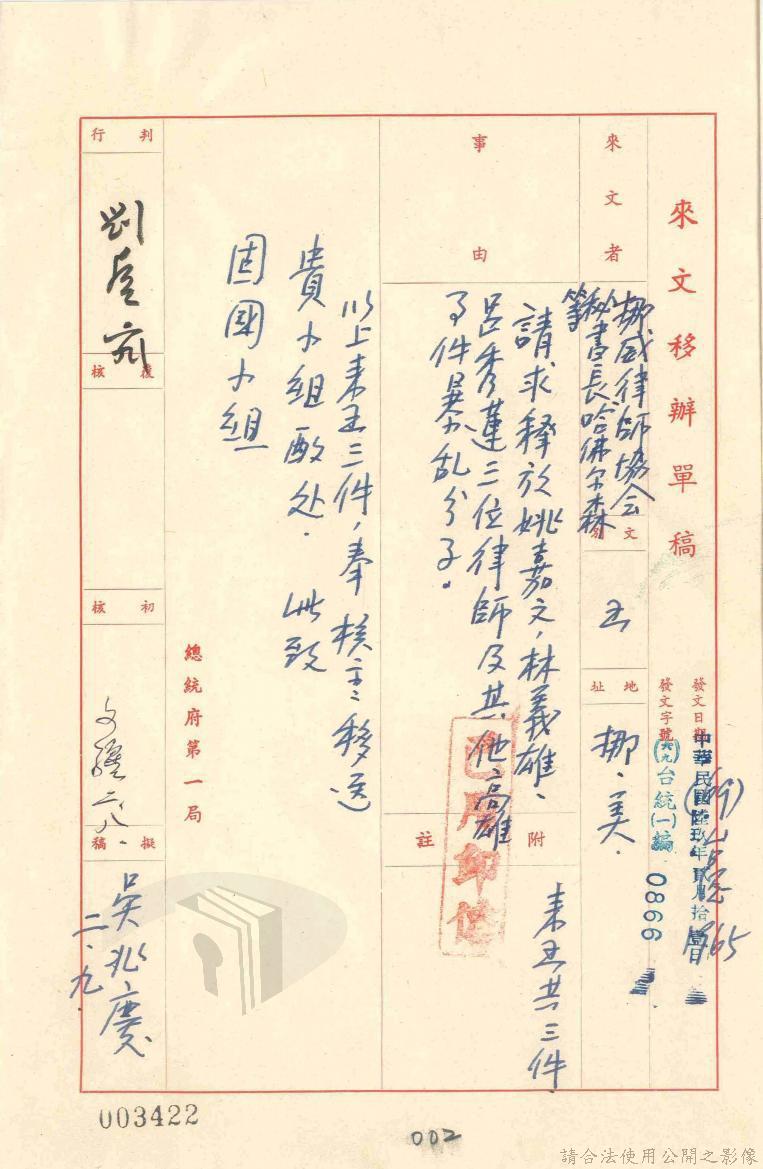 來文移辦單稿
發文日期
中華民國陸玖年貳月拾壹日
發文字號
(六九)台統(一)編 0866
(69)
1765
來文者
挪威律師協会
秘書長哈佛尔森
等
文
地址
挪、美.
事由
請求释放姚嘉文,林義雄、
呂秀蓮三位律師及其他高雄
事件暴乱分子。
附註
来函共三件.
已用印信
以上来函三件,奉核定移送
貴小組酌处. 此致
固國小組
總統府第一局
判行
覆核
初核
二、八.
擬稿
吳兆慶
二、九
003422
002
請合法使用公開之影像